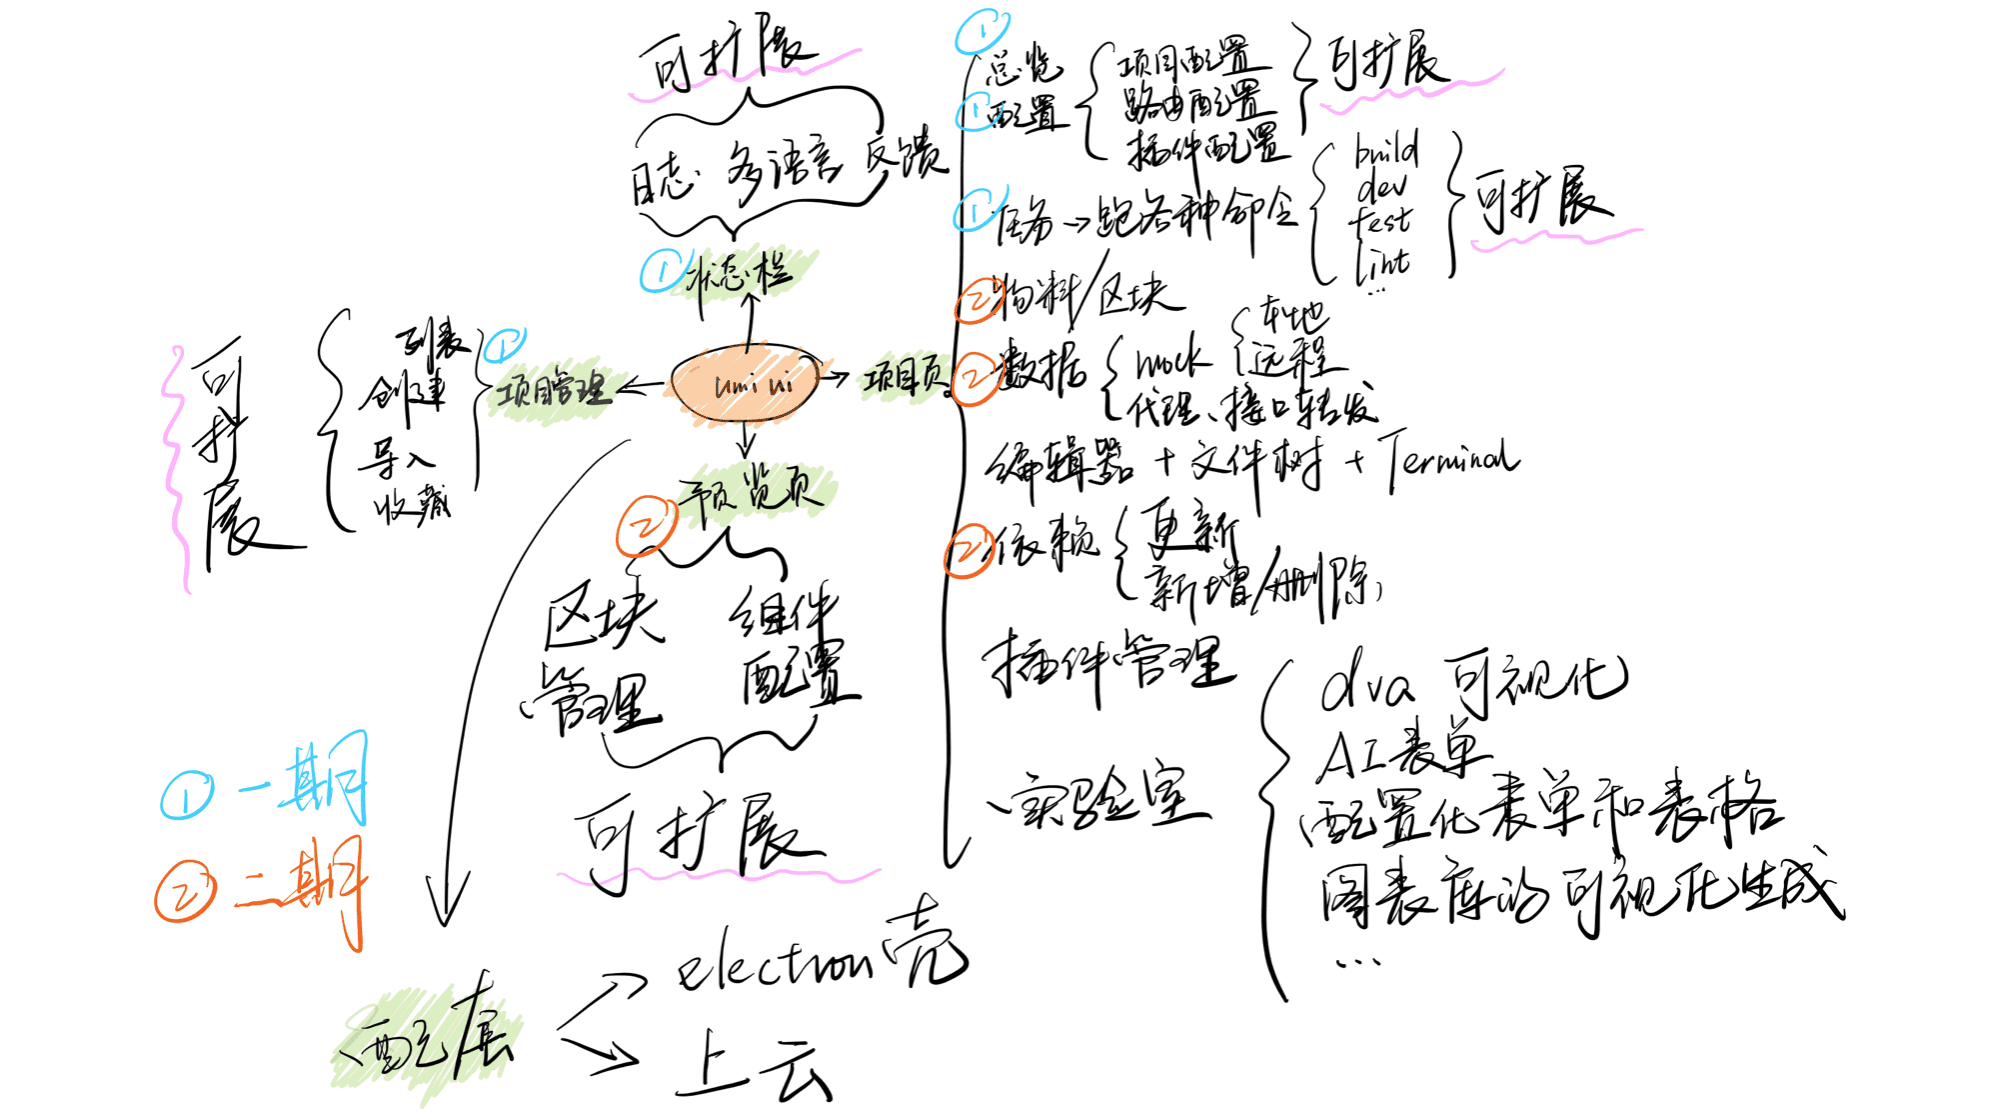 可扩展
日志 多语言 反馈
① 状态栏
umi ui
① 项目管理
列表
创建
导入
收藏
可扩展
项目页
② 预览页
区块管理
组件配置
可扩展
① 总览
① 配置
项目配置
路由配置
插件配置
可扩展
① 任务→跑各种命令
build
dev
test
lint
...
可扩展
② 物料/区块
② 数据
mock
本地
远程
代理、接口转发
编辑器 + 文件树 + Terminal
② 依赖
更新
新增/删除
插件管理
实验室
dva 可视化
AI表单
配置化表单和表格
图表库的可视化生成
...
① 一期
② 二期
配套
electron壳
上云